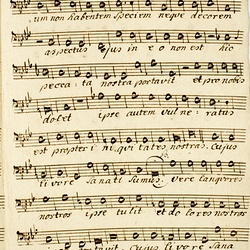 um non habentem speciem neque decorem
aspectus ejus in eo non est hic
pecca ta nostra portavit et pro nobis
dolet ipse autem vulne ratus
est propter i ni qui tates nostras. Cujus
livore sanati sumus. Vere languores
nostros ipse tulit et dolores nostros
portavit. Cujus livore sana